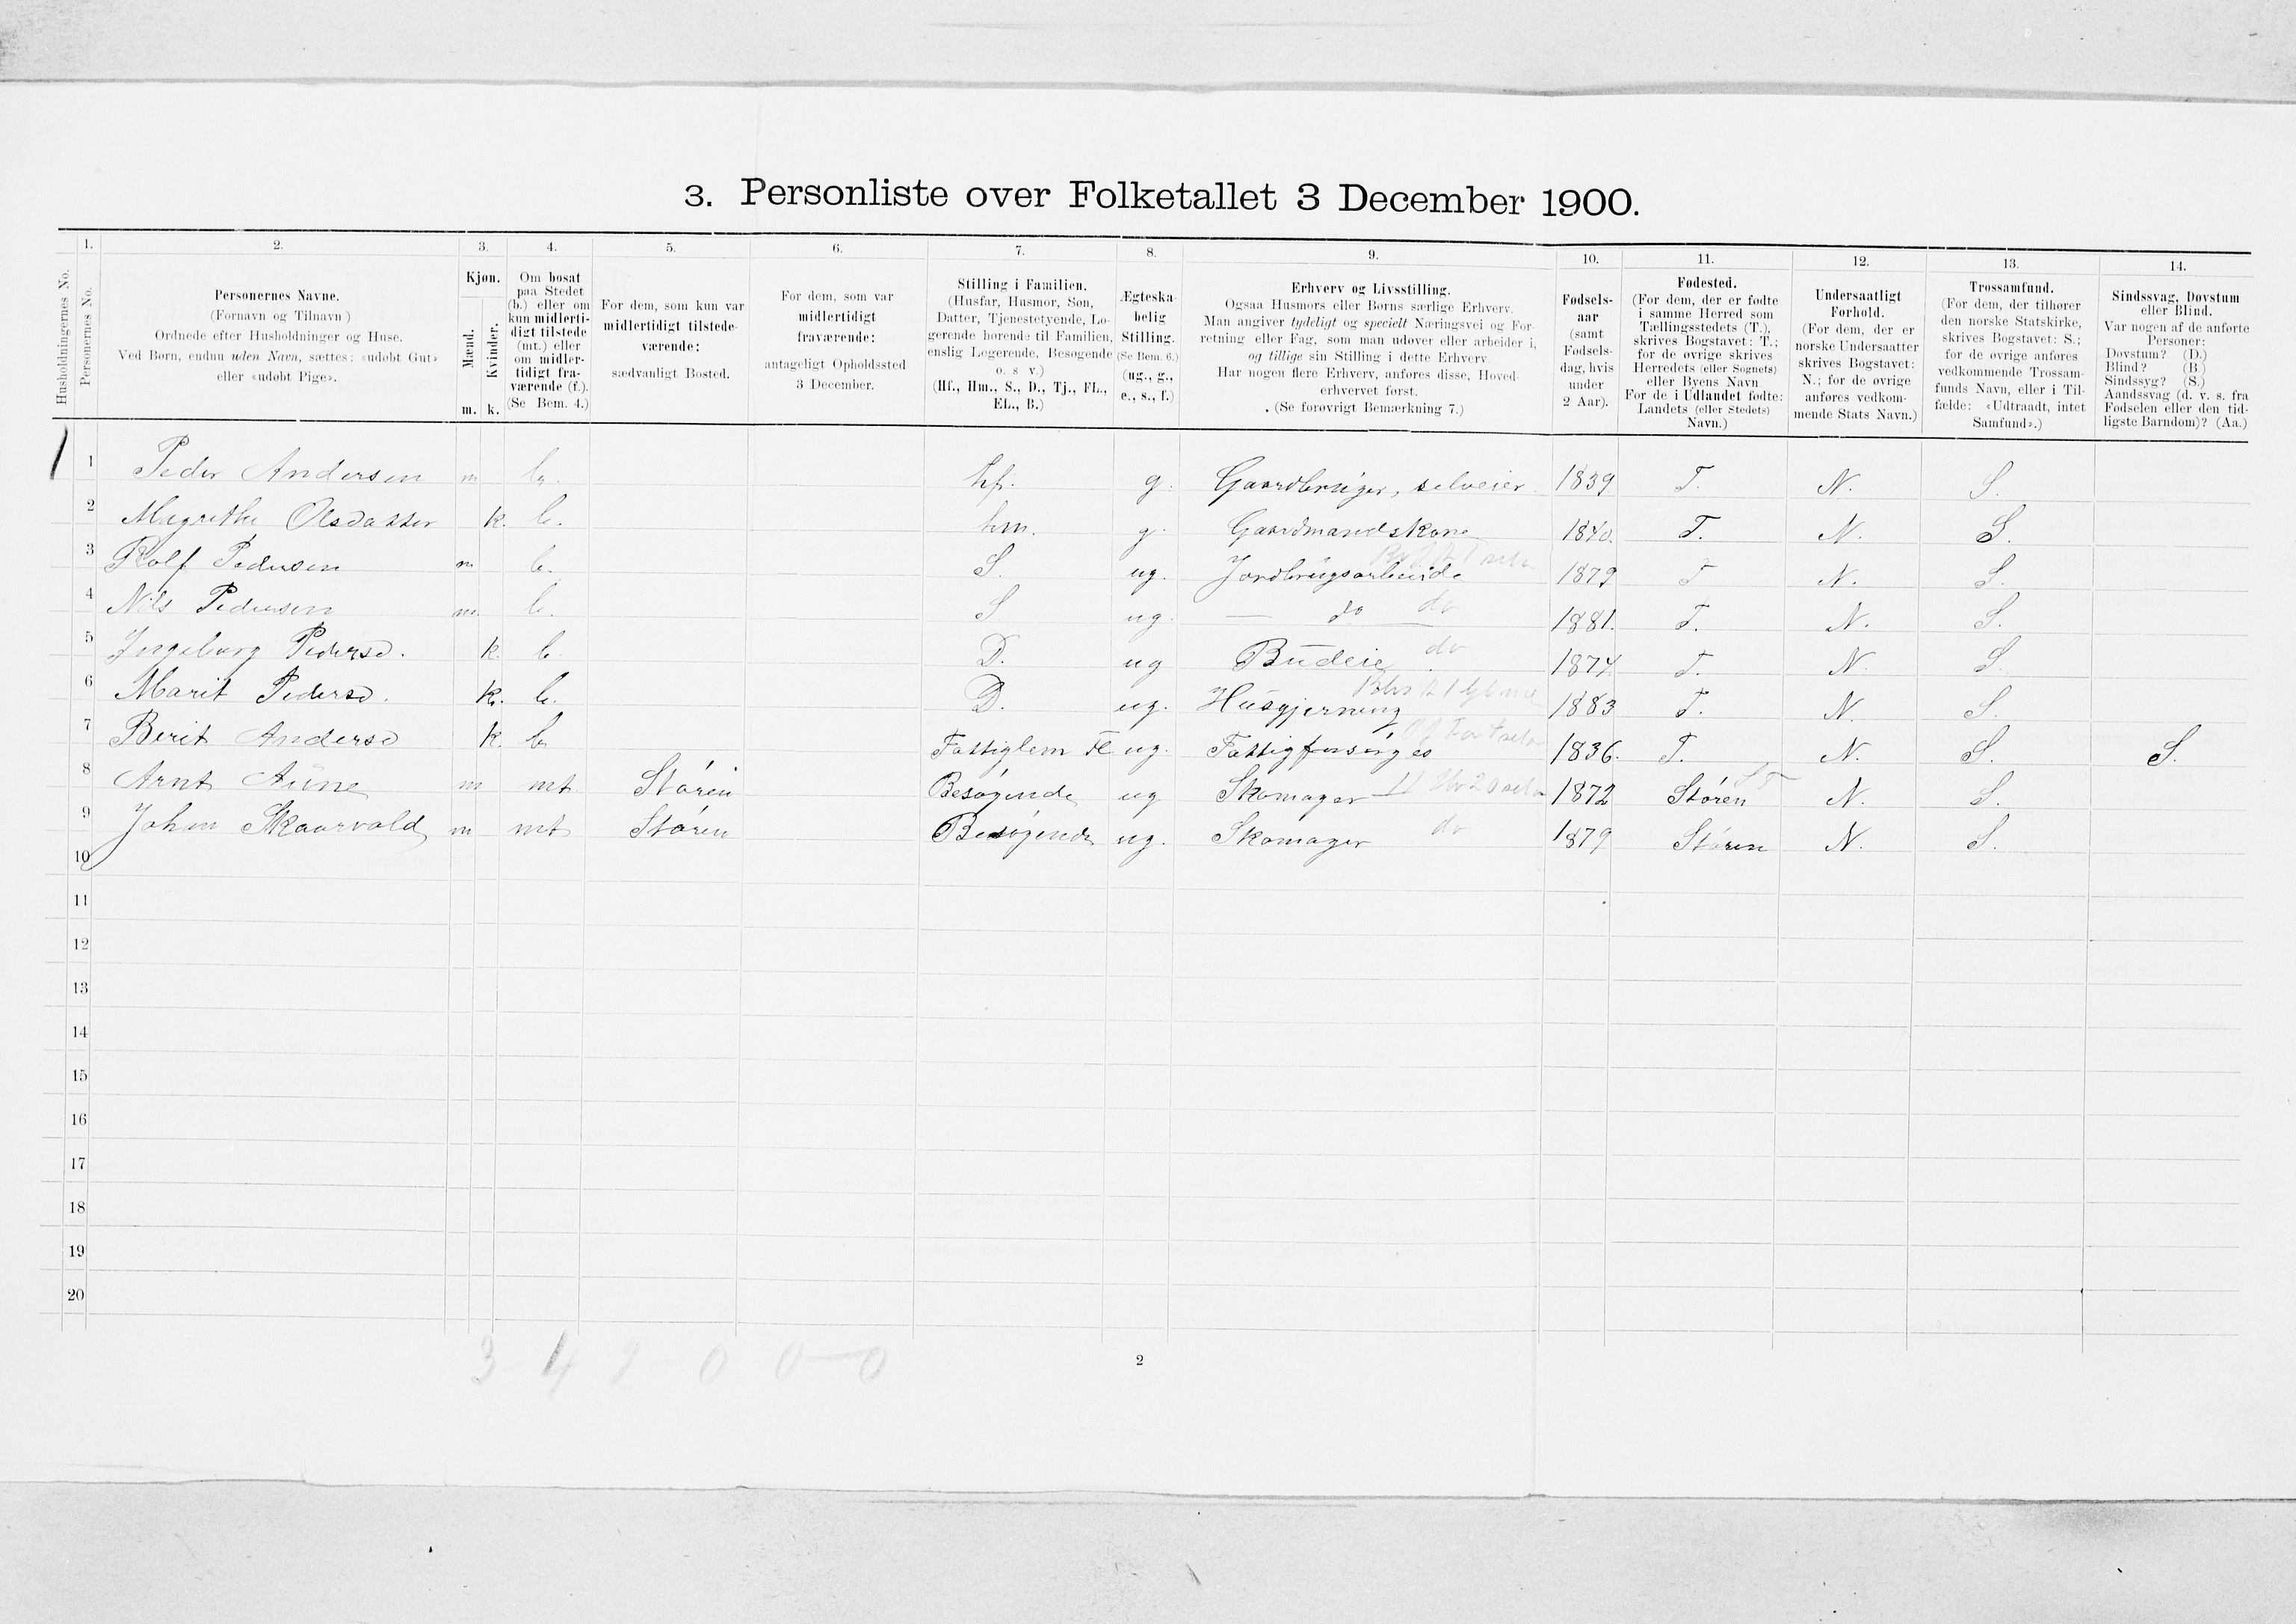 3. Personliste over Folketallet 3 December 1900.
1. 2. 3. 4. 5. 6. 7. 8. 9. 10. 11. 12. 13. 14.
Husholdningernes No.
Personernes No.
Personernes Navne.
(Fornavn og Tilnavn)
Ordnede efter Husholdninger og Huse.
Ved Børn, endnu uden Navn, sættes: «udøbt Gut»
eller «udøbt Pige».
Kjøn.
Mænd.
Kvinder.
m. k.
Om bosat
paa Stedet
(b.) eller om
kun midlerti-
digt tilstede
(mt.) eller
om midler-
tidigt fra-
værende (f.).
(Se Bem. 4.)
For dem, som kun var
midlertidigt tilstede-
værende:
sædvanligt Bosted.
For dem, som var
midlertidigt
fraværende:
antageligt Opholdssted
3 December.
Stilling i Familien.
(Husfar, Husmor, Søn,
Datter, Tjenestetyende, Lo-
gerende hørende til Familien,
enslig Logerende, Besøgende
o. s v.)
(Hf., Hm., S., D., Tj., FL.,
EL., B.)
Ægteska-
belig
Stilling.
(Se Bem. 6.)
(ug., g.,
e., s., f.)
Erhverv og Livsstilling.
Ogsaa Husmors eller Børns særlige Erhverv.
Man angiver tydeligt og specielt Næringsvei og For-
retning eller Fag, som man udøver eller arbeider i,
og tillige sin Stilling i dette Erhverv.
Har nogen flere Erhverv, anføres disse, Hoved-
erhvervet først.
(Se forøvrigt Bemærkning 7.)
Fødsels-
aar
(samt
Fødsels-
dag, hvis
under
2 Aar).
Fødested.
(For dem, der er fødte
i samme Herred som
Tællingsstedets (T.),
skrives Bogstavet: T.;
for de øvrige skrives
Herredets (eller Sognets)
eller Byens Navn.
For de i Udlandet fødte:
Landets (eller Stedets)
Navn.)
Undersaatligt
Forhold.
(For dem, der er
norske Undersaatter
skrives Bogstavet:
N.; for de øvrige
anføres vedkom-
mende Stats Navn.)
Trossamfund.
(For dem, der tilhører
den norske Statskirke,
skrives Bogstavet: S.;
for de øvrige anføres
vedkommende Trossam-
funds Navn, eller i Til-
fælde: «Udtraadt, intet
Samfund».)
Sindssvag, Døvstum
eller Blind.
Var nogen af de anførte
Personer:
Døvstum? (D.)
Blind? (B.)
Sindssyg? (S.)
Aandssvag (d. v. s. fra
Fødselen eller den tid-
ligste Barndom)? (Aa.)
1 1 Peder Andersen m b. hf. g. Gaardbruger, selveier 1839 T. N. S.
2 Magrethe Olsdatter k. b. hm. g. Gaardmandskone 1840. T. N. S.
3 Rolf Pedersen m b. S. ug. Jordbrugsarbeide 1879 T N. S.
4 Nils Pedersen m. b. S ug. — do — do 1881. T. N. S.
5 Ingeborg Pedersd. k. b D. ug Budeie do 1874 T. N. S.
6 Marit Pedersd. k. b. D. ug. Husgjerning 1883 T. N. S.
7 Berit Andersd k. b Fattiglem FL ug. Fattigforsørges 1836. T. N. S. S.
8 Arnt Aune m mt Støren Besøgende ug Skomager 1872 Støren N. S.
9 Johan Skaarvold m mt Støren Besøgende ug. Skomager do 1879 Støren N. S.
10
11
12
13
14
15
16
17
18
19
20
3 - 4 2 - 0 0 - 0
2